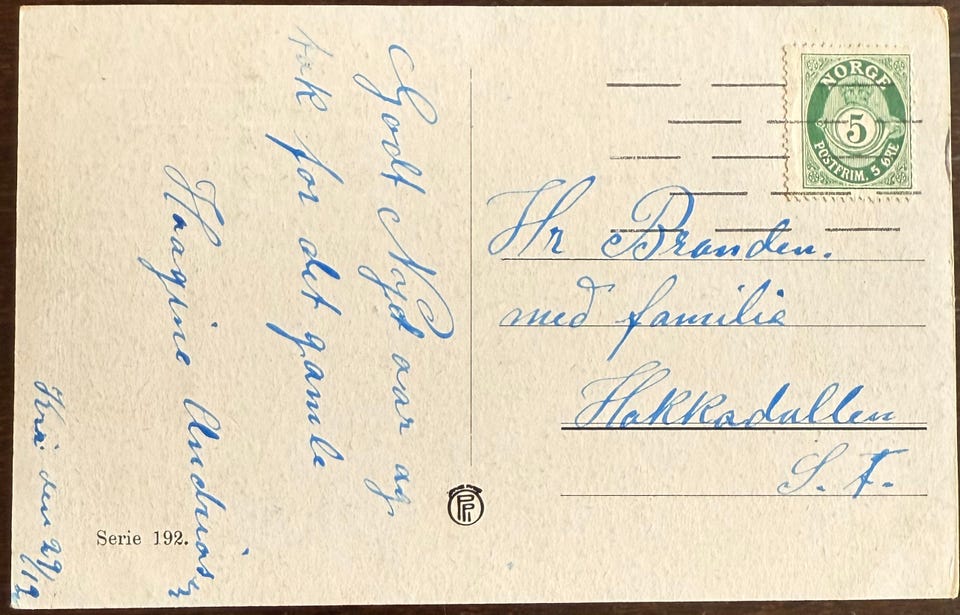 Godt Nyt aar og
tak for det gamle
Haagine Andrias
Kria den 29/12
Serie 192.
PP
NORGE
5
POSTFRIM. 5 ØRE
Hr Branden.
med familie
Hakkadallen
S. F.